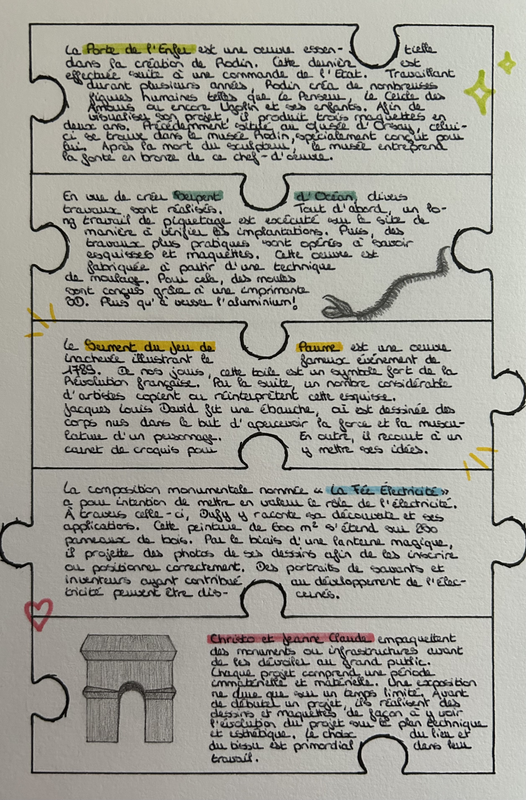 La Porte de l'Enfer est une oeuvre essen- tielle
dans la création de Rodin. Cette dernière est
effectuée suite à une commande de l'État. Travaillant
durant plusieurs années, Rodin créa de nombreuses
figures humaines telles que le Penseur, le Cercle des
Amours ou encore Ugolin et ses enfants. Afin de
visualiser son projet, il produit trois maquettes en
deux ans. Précédemment située au Musée d'Orsay, celui-
ci se trouve dans le musée Rodin, spécialement conçut pour
lui. Après la mort du sculpteur, le musée entreprend
la fonte en bronze de ce chef-d'oeuvre.
En vue de créer Serpent d'Océan, divers
travaux sont réalisés. Tout d'abord, un lo-
ng travail de piquetage est exécuté sur le site de
manière à vérifier les implantations. Puis, des
travaux plus pratiques sont opérés à savoir
esquisses et maquettes. Cette oeuvre est
fabriquée à partir d'une technique
de moulage. Pour cela, des moules
sont conçus grâce à une imprimante
3D. Plus qu'à verser l'aluminium!
Le Serment du jeu de Paume est une oeuvre
inachevée illustrant le fameux événement de
1789. De nos jours, cette toile est un symbole fort de la
Révolution française. Par la suite, un nombre considérable
d'artistes copient ou réinterprètent cette esquisse.
Jacques Louis David fit une ébauche, où est dessinée des
corps nus dans le but d'apercevoir la force et la muscu-
lature d'un personnage. En outre, il recourt à un
carnet de croquis pour y mettre ses idées.
La composition monumentale nommée « La Fée Électricité »
a pour intention de mettre en valeur le rôle de l'électricité.
À travers celle-ci, Dufy y raconte sa découverte et ses
applications. Cette peinture de 600 m² s'étend sur 250
panneaux de bois. Par le biais d'une lanterne magique,
il projette des photos de ses dessins afin de les inscrire
ou positionner correctement. Des portraits de savants et
inventeurs ayant contribué au développement de l'élec-
tricité peuvent être dis- cernés.
Christo et Jeanne Claude empaquettent
des monuments ou infrastructures avant
de les dévoiler au grand public.
Chaque projet comprend une période
immatérielle et matérielle. Une exposition
ne dure que sur un temps limité. Avant
de débuter un projet, ils réalisent des
dessins et maquettes de façon à y voir
l'évolution du projet sur le plan technique
et esthétique. Le choix du lieu et
du tissu est primordial dans leur
travail.